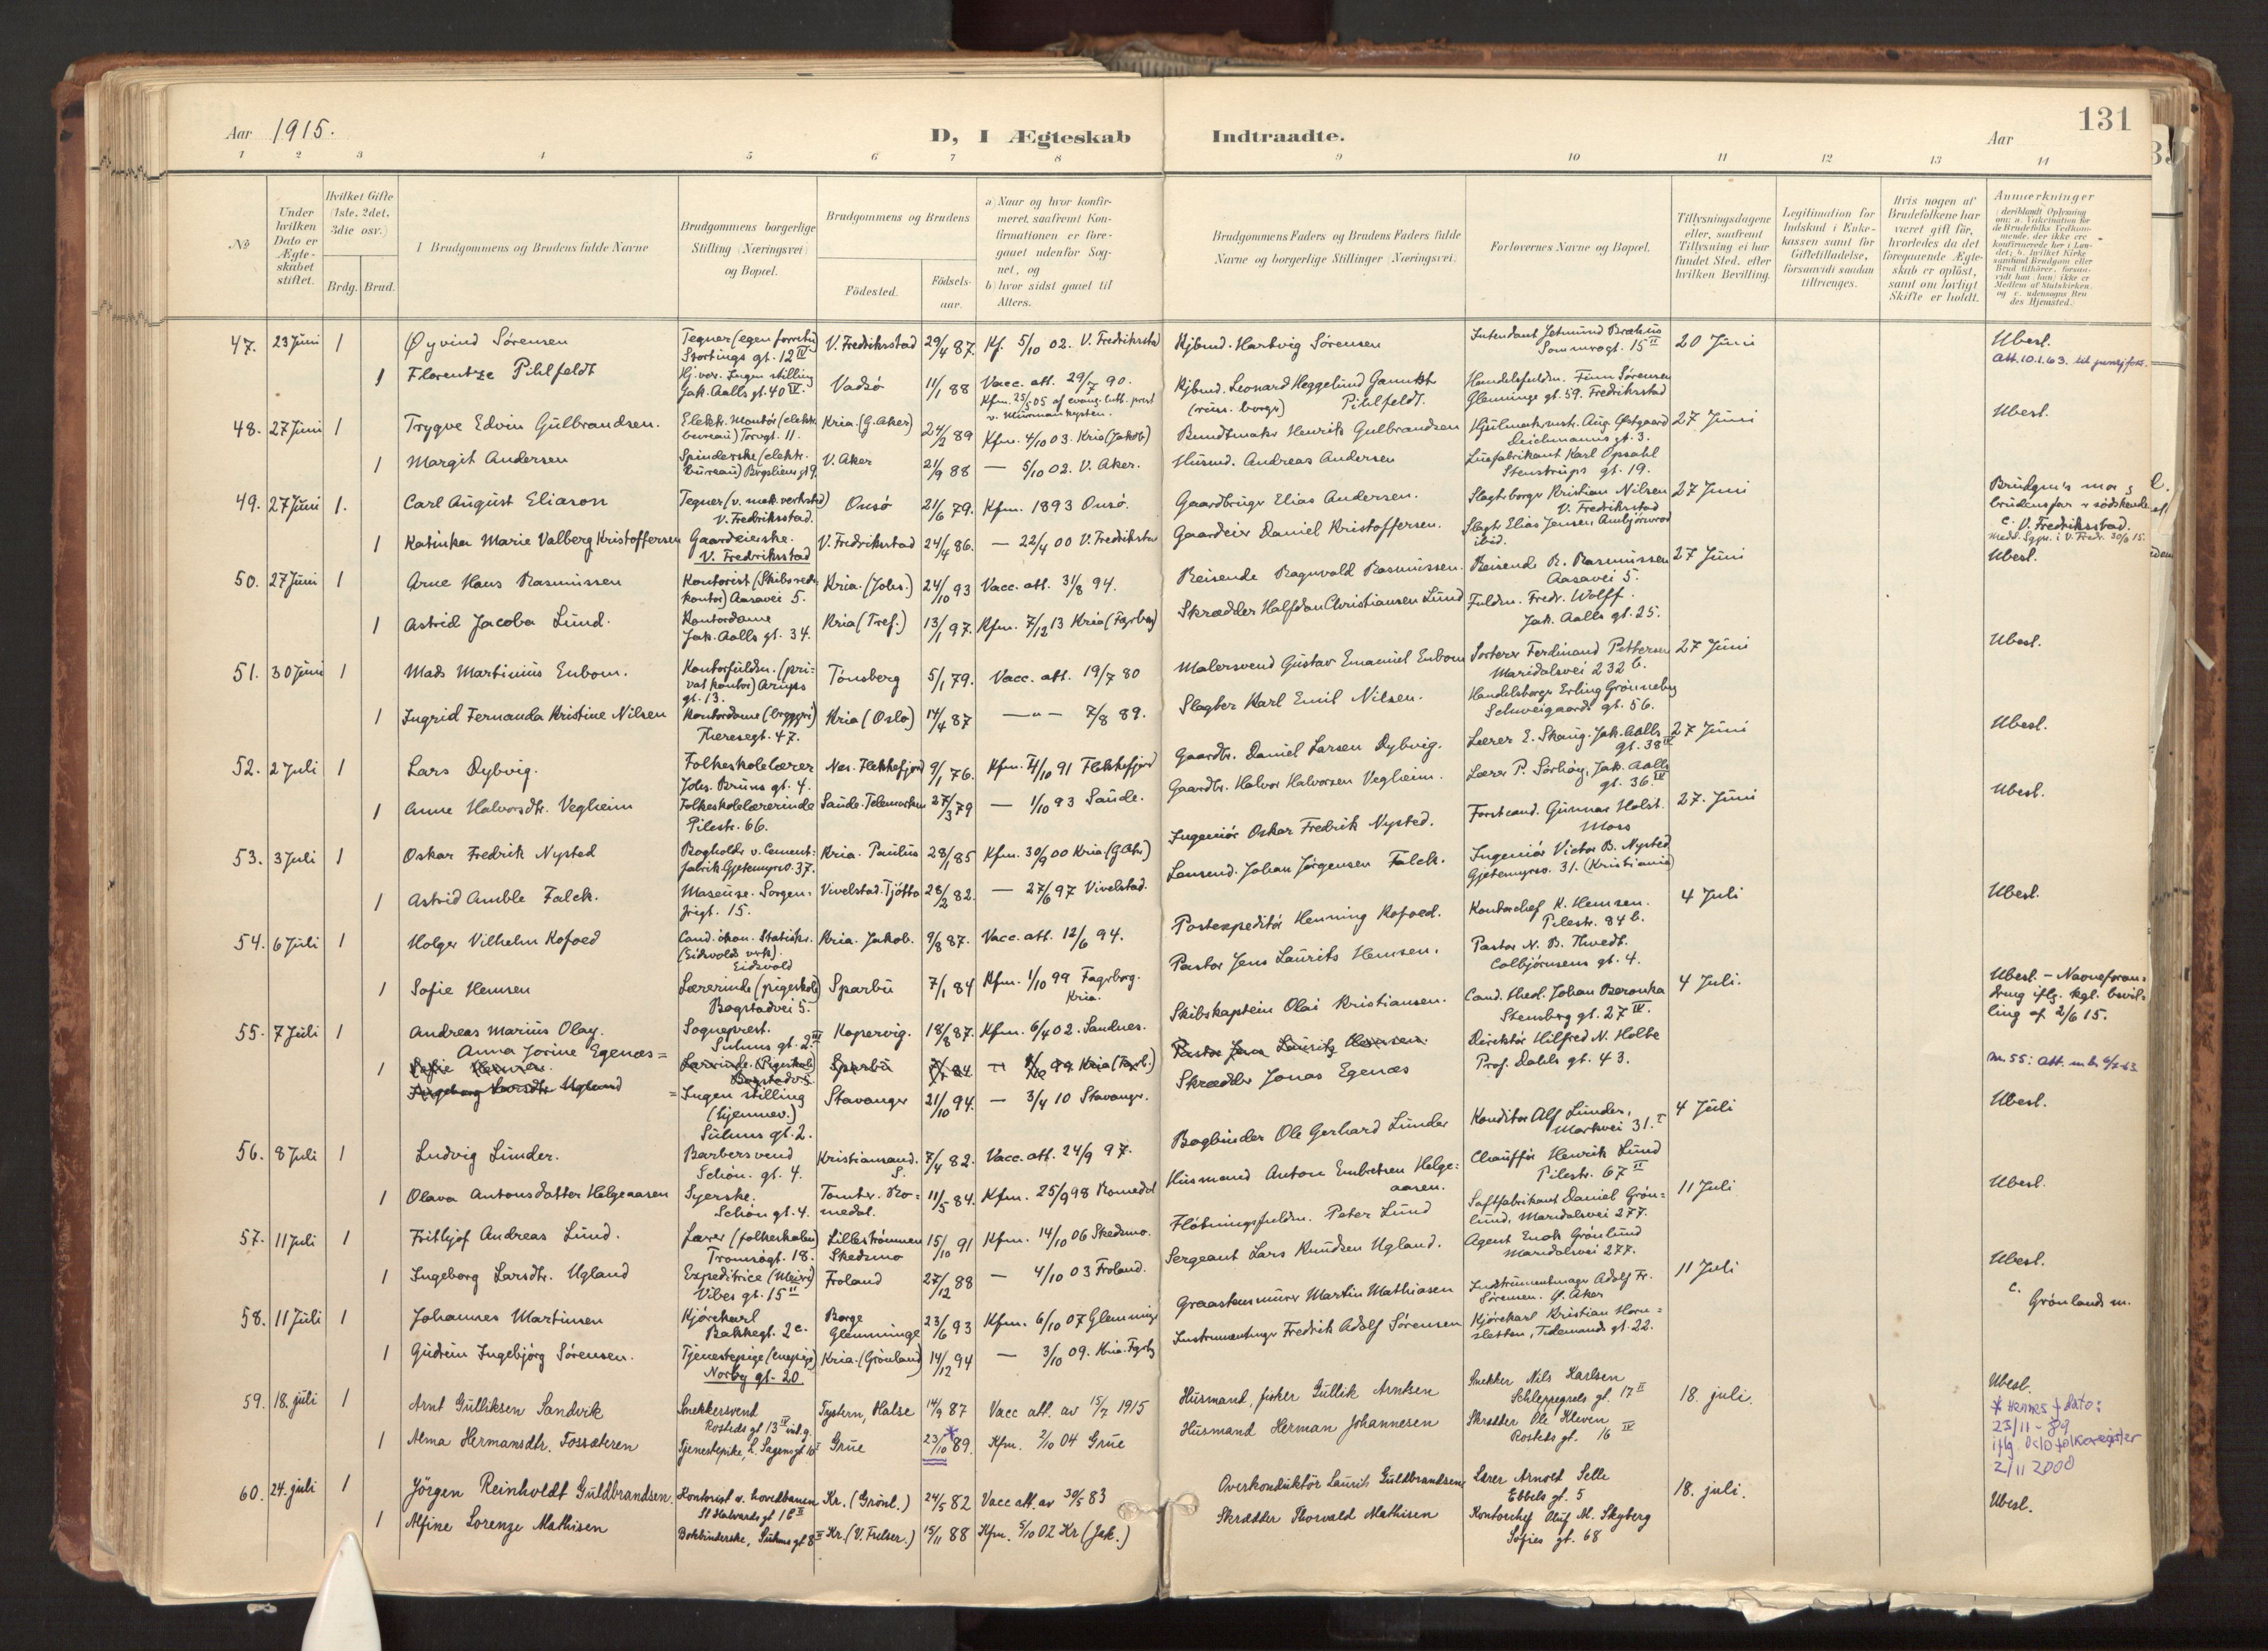 131
Aar 1915.
D, I Ægteskab Indtraadte.
Aar
1 2 3 4 5 6 7 8 9 10 11 12 13 14
№
Under hvilken Dato er Ægteskabet stiftet.
Hvilket Gifte (1ste, 2det, 3die osv.)
Brdg. Brud.
I Brudgommens og Brudens fulde Navne
Brudgommens borgerlige Stilling (Næringsvei) og Bopæl.
Brudgommens og Brudens
Fødested.
Fødselsaar.
a) Naar og hvor konfirmeret, saafremt Konfirmationen er foregaaet udenfor Sognet, og
b) hvor sidst gaaet til Alters.
Brudgommens Faders og Brudens Faders fulde Navne og borgerlige Stillinger (Næringsvei).
Forlovernes Navne og Bopæl.
Tillysningsdagene eller, saafremt Tillysning ei har fundet Sted, efter hvilken Bevilling.
Legitimation for Indskud i Enkekassen samt for Giftetilladelse, forsaavidt saadan tiltrænges.
Hvis nogen af Brudefolkene har været gift før, hvorledes da det foregaaende Ægteskab er opløst, samt om lovligt Skifte er holdt.
Anmærkninger
47. 23 Juni 1 Øyvind Sørensen
Stortings gt. 12 IV
V. Fredriksstad 29/4 87. Kf. 5/10 02. V. Fredriksstad
Kjbmd. Hartvig Sørensen
Sommrogt. 15 II
20 Juni Ubesl.
1 Florentze Pihlfeldt
Hj. vær. Ingen stilling
Jak. Aalls gt. 40 IV.
Vadsø 11/1 88 Vacc. att. 29/7 90.
Kjbmd. Leonard Heggelund
(russ. borger) Pihlfeldt.
Handelsfuldm. Finn Sørensen
Glemminge gt. 59. Fredriksstad
48. 27 Juni 1 Trygve Edvin Gulbrandsen.
Elektr. Montör (elektr.
bureau) Torvgt. 11.
Kria. (G. Aker) 24/2 89 Kfm. 4/10 03. Kria (Jakob)
Bundtmaker Henrik Gulbrandsen
Hjulmakermstr. Aug. Østgaard
Deichmanns gt. 3.
27 Juni Ubesl.
1 Margit Andersen
V. Aker 21/9 88 — 5/10 02. V. Aker.
Husmd. Andreas Andersen
Luefabrikant Karl Opsahl
Stenstrups gt. 19.
49. 27 Juni 1. Carl August Eliason
Tegner (v. mek. verksted)
V. Fredriksstad.
Onsö 21/6 79. Kfm. 1893 Onsö.
Gaardbruger Elias Andersen.
Slagterborger Kristian Nilsen
V. Fredriksstad
27 Juni
c. V. Fredriksstad.
1 Katinka Marie Valberg Kristoffersen
Gaardeierske.
V. Fredriksstad
V. Fredrikstad 24/4 86. — 22/4 00 V. Fredrikstad
Gaardeier Daniel Kristoffersen.
Slagter Elias Jensen
ibid.
50. 27 Juni 1 Arne Hans Rasmussen
Kontorist (Skibsreder
kontor) Aasavei 5.
Kria. (Johs.) 24/10 93 Vacc. att. 31/8 94.
Reisende Ragnvald Rasmussen.
Reisende R. Rasmussen
Aasavei 5.
27 Juni Ubesl.
1 Astrid Jacoba Lund.
Kontordame
Jak. Aalls gt. 34.
Kria (Tref.) 13/1 97. Kfm. 7/12 13 Kria (Fagerborg)
Skrædder Halfdan Christiansen Lund
Fuldm. Fredr. Wolff.
Jak. Aalls gt. 25.
51. 30 Juni 1 Mads Martinius Enbom.
Kontorfuldm. (pri-
vat kontor) Arups
gt. 13.
Tönsberg 5/1 79. Vacc. att. 19/7 80
Malersvend Gustav Emanuel Enbom
Sorterer Ferdinand Pettersen
Maridalsvei 232 b.
27 Juni Ubesl.
1 Ingrid Fernanda Kristine Nilsen
Kontordame (bryggeri)
Theresegt. 47.
Kria (Oslo) 14/4 87 —"— 7/8 89.
Slagter Karl Emil Nilsen.
Handelsborger Erling Grönneberg
Schweigaards gt. 56.
52. 2 Juli 1 Lars Dybvig.
Folkeskolelærer
Johs. Bruns gt. 4.
Nes. Flekkefjord 9/1 76. Kfm. 4/10 91 Flekkefjord
Gaardbr. Daniel Larsen Dybvig.
Lærer E. Skaug. Jak. Aalls
gt. 38 IV
27 Juni Ubesl.
1 Anne Halvorsdtr. Vegheim
Folkeskolelærerinde
Pilestr. 66.
Saude. Telemarken 27/3 79 — 1/10 93 Saude.
Gaardbr. Halvor Halvorsen Vegheim.
Lærer P. Sörhöy, Jak. Aalls
gt. 36 IV
53. 3 Juli 1 Oskar Fredrik Nysted
Bogholder v. Cement-
fabrik Gjetemyrsv. 37.
Kria. Paulus 28/1 85 Kfm. 30/9 00 Kria (G. Aker)
Ingeniör Oskar Fredrik Nysted.
Forstcand. Gunnar Holst.
Moss
27. Juni Ubesl.
1 Astrid Amble Falch.
Maseuse. Sorgen-
frigt. 15.
Vivelstad. Tjötta 28/2 82. — 27/6 97 Vivelstad.
Lensmd. Johan Jörgensen Falch.
Ingeniör Victor B. Nysted
Gjetemyrsv. 31. (Kristiania)
54. 6 Juli 1 Holger Vilhelm Kofoed
(Eidsvolds verk).
Eidsvold
Kria. Jakob. 9/8 87. Vacc. att. 12/6 94.
Postexpeditör Henning Kofoed.
Kontorchef K. Hemsen.
Pilestr. 84 b.
4 Juli Ubesl.
1 Sofie Hemsen
Lærerinde (pigeskole)
Bogstadvei 5.
Sparbu 7/1 84 Kfm. 1/10 99 Fagerborg.
Kria.
Pastor Jens Laurits Hemsen.
Pastor N. B. Thvedt.
Colbjörnsens gt. 4.
55. 7 Juli 1 Andreas Marius Olay.
Sogneprest.
Suhms gt. 2. III
Kopervig. 18/8 87. Kfm. 6/4 02. Sandnes.
Skibskaptein Olai Kristiansen.
Cand. theol. Johan Beronka
Stensberg gt. 27 IV.
4 Juli. Ubesl. – Navneforan-
dring iflg. kgl. bevil-
ling af 2/6 15.
Anna Jorine Egenæs =
1 Sofie Hemsen.
Lærerinde (Pigeskole)
Bogstadv. 5.
Sparbu 7/1 84. — 1/10 99 Kria (Fagerb.)
Pastor Jens Lauritz Hemsen.
Direktör Hilfred N. Holbe
Prof. Dahls gt. 43.
Ingeborg Larsdtr. Ugland
= Ingen stilling
(hjemmev.)
Suhms gt. 2.
Stavanger 21/10 94. — 3/4 10 Stavanger.
Skrædder Jonas Egenæs
56. 8 Juli 1 Ludvig Lunder.
Barbersvend
Schön. gt. 4.
Kristiansand. S. 7/4 82. Vacc. att. 24/9 97.
Bogbinder Ole Gerhard Lunder
Konditor Alf Lunder,
Markvei 31. I
4 Juli Ubesl.
1 Olava Antonsdatter Helgeaasen
Syerske.
Schön gt. 4.
Tomter. Ro-
medal. 11/5 84. Kfm. 25/9 98 Romedal
Husmand Anton Embretsen Helge-
aasen.
Chauffør Henrik Lund
Pilestr. 67 II
57. 11 Juli 1 Frithjof Andreas Lund.
Lærer (folkeskolen)
Tromsögt. 18.
Lilleströmmen
Skedsmo 15/10 91 Kfm. 14/10 06 Skedsmo.
Flötningsfuldm. Peter Lund
Saftfabrikant Daniel Grön-
lund, Maridalsvei 277.
11 Juli Ubesl.
1 Ingeborg Larsdtr. Ugland
Expeditrice (Meieri)
Vibes gt. 15 II
Froland 27/12 88 — 4/10 03 Froland.
Sergeant Lars Knudsen Ugland.
Agent Enok Grönlund
Maridalsvei 277.
58. 11 Juli 1 Johannes Martinsen
Kjörekarl
Bakkegt. 2 c.
Borge
Glemminge 23/6 93 Kfm. 6/10 07 Glemminge
Graastensmurer Martin Mathiasen
Instrumentmager Adolf Fr.
Sörensen. Ø. Aker
11 Juli Ubesl.
c. Grönlands m.
1 Gudrun Ingebjörg Sörensen.
Tjenestepige (enepige)
Norby gt. 20
Kria. (Grönland) 14/12 94 — 3/10 09. Kria. Fagerb.
Instrumentmager Fredrik Adolf Sörensen
Kjörekarl Kristian Horn-
sletten, Tidemands gt. 22.
59. 18. juli 1 Arnt Gulliksen Sandvik
Snekkersvend
Rosteds gt 13 IV
Tystern, Halse 14/9 87 Vacc att. av 15/7 1915
Husmand, fisker Gullik Arntsen
Snekker Nils Karlsen
Schleppegrels gt. 17 II
18. juli. Ubesl.
* Hennes † dato:
23/11 - 79
iflg Oslo folkeregister
2/11 2000
1 Alma Hermansdtr. Fossæteren
Grue 23/10 89. * Kfm. 2/10 04 Grue
Husmand Herman Johannesen
Skrædder Ole Kleven
Rosteds gt. 16 IV
60. 24. juli 1 Jörgen Reinholdt Guldbrandsen.
Kontorist v. hovedbanen
St Halvards gt 16 II
Kr. (Grönl.) 24/5 82 Vacc att. av 30/5 83
Overkonduktör Laurits Guldbrandsen
Lærer Arnold Selle
Ebbels gt. 5
18. juli. Ubesl.
1 Alfine Lorenze Mathisen
Bokbinderske, Suhms gt 8 II
Kr. (V. Frelser.) 15/11 88 Kfm. 5/10 02 Kr (Jak.)
Skrædder Thorvald Mathisen
Kontorchef Oluf M. Skyberg
Sofies gt. 68